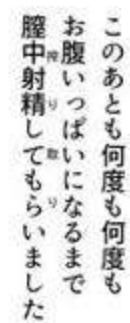 このあとも何度も何度も
お腹いっぱいになるまで
膣中射精してもらいました